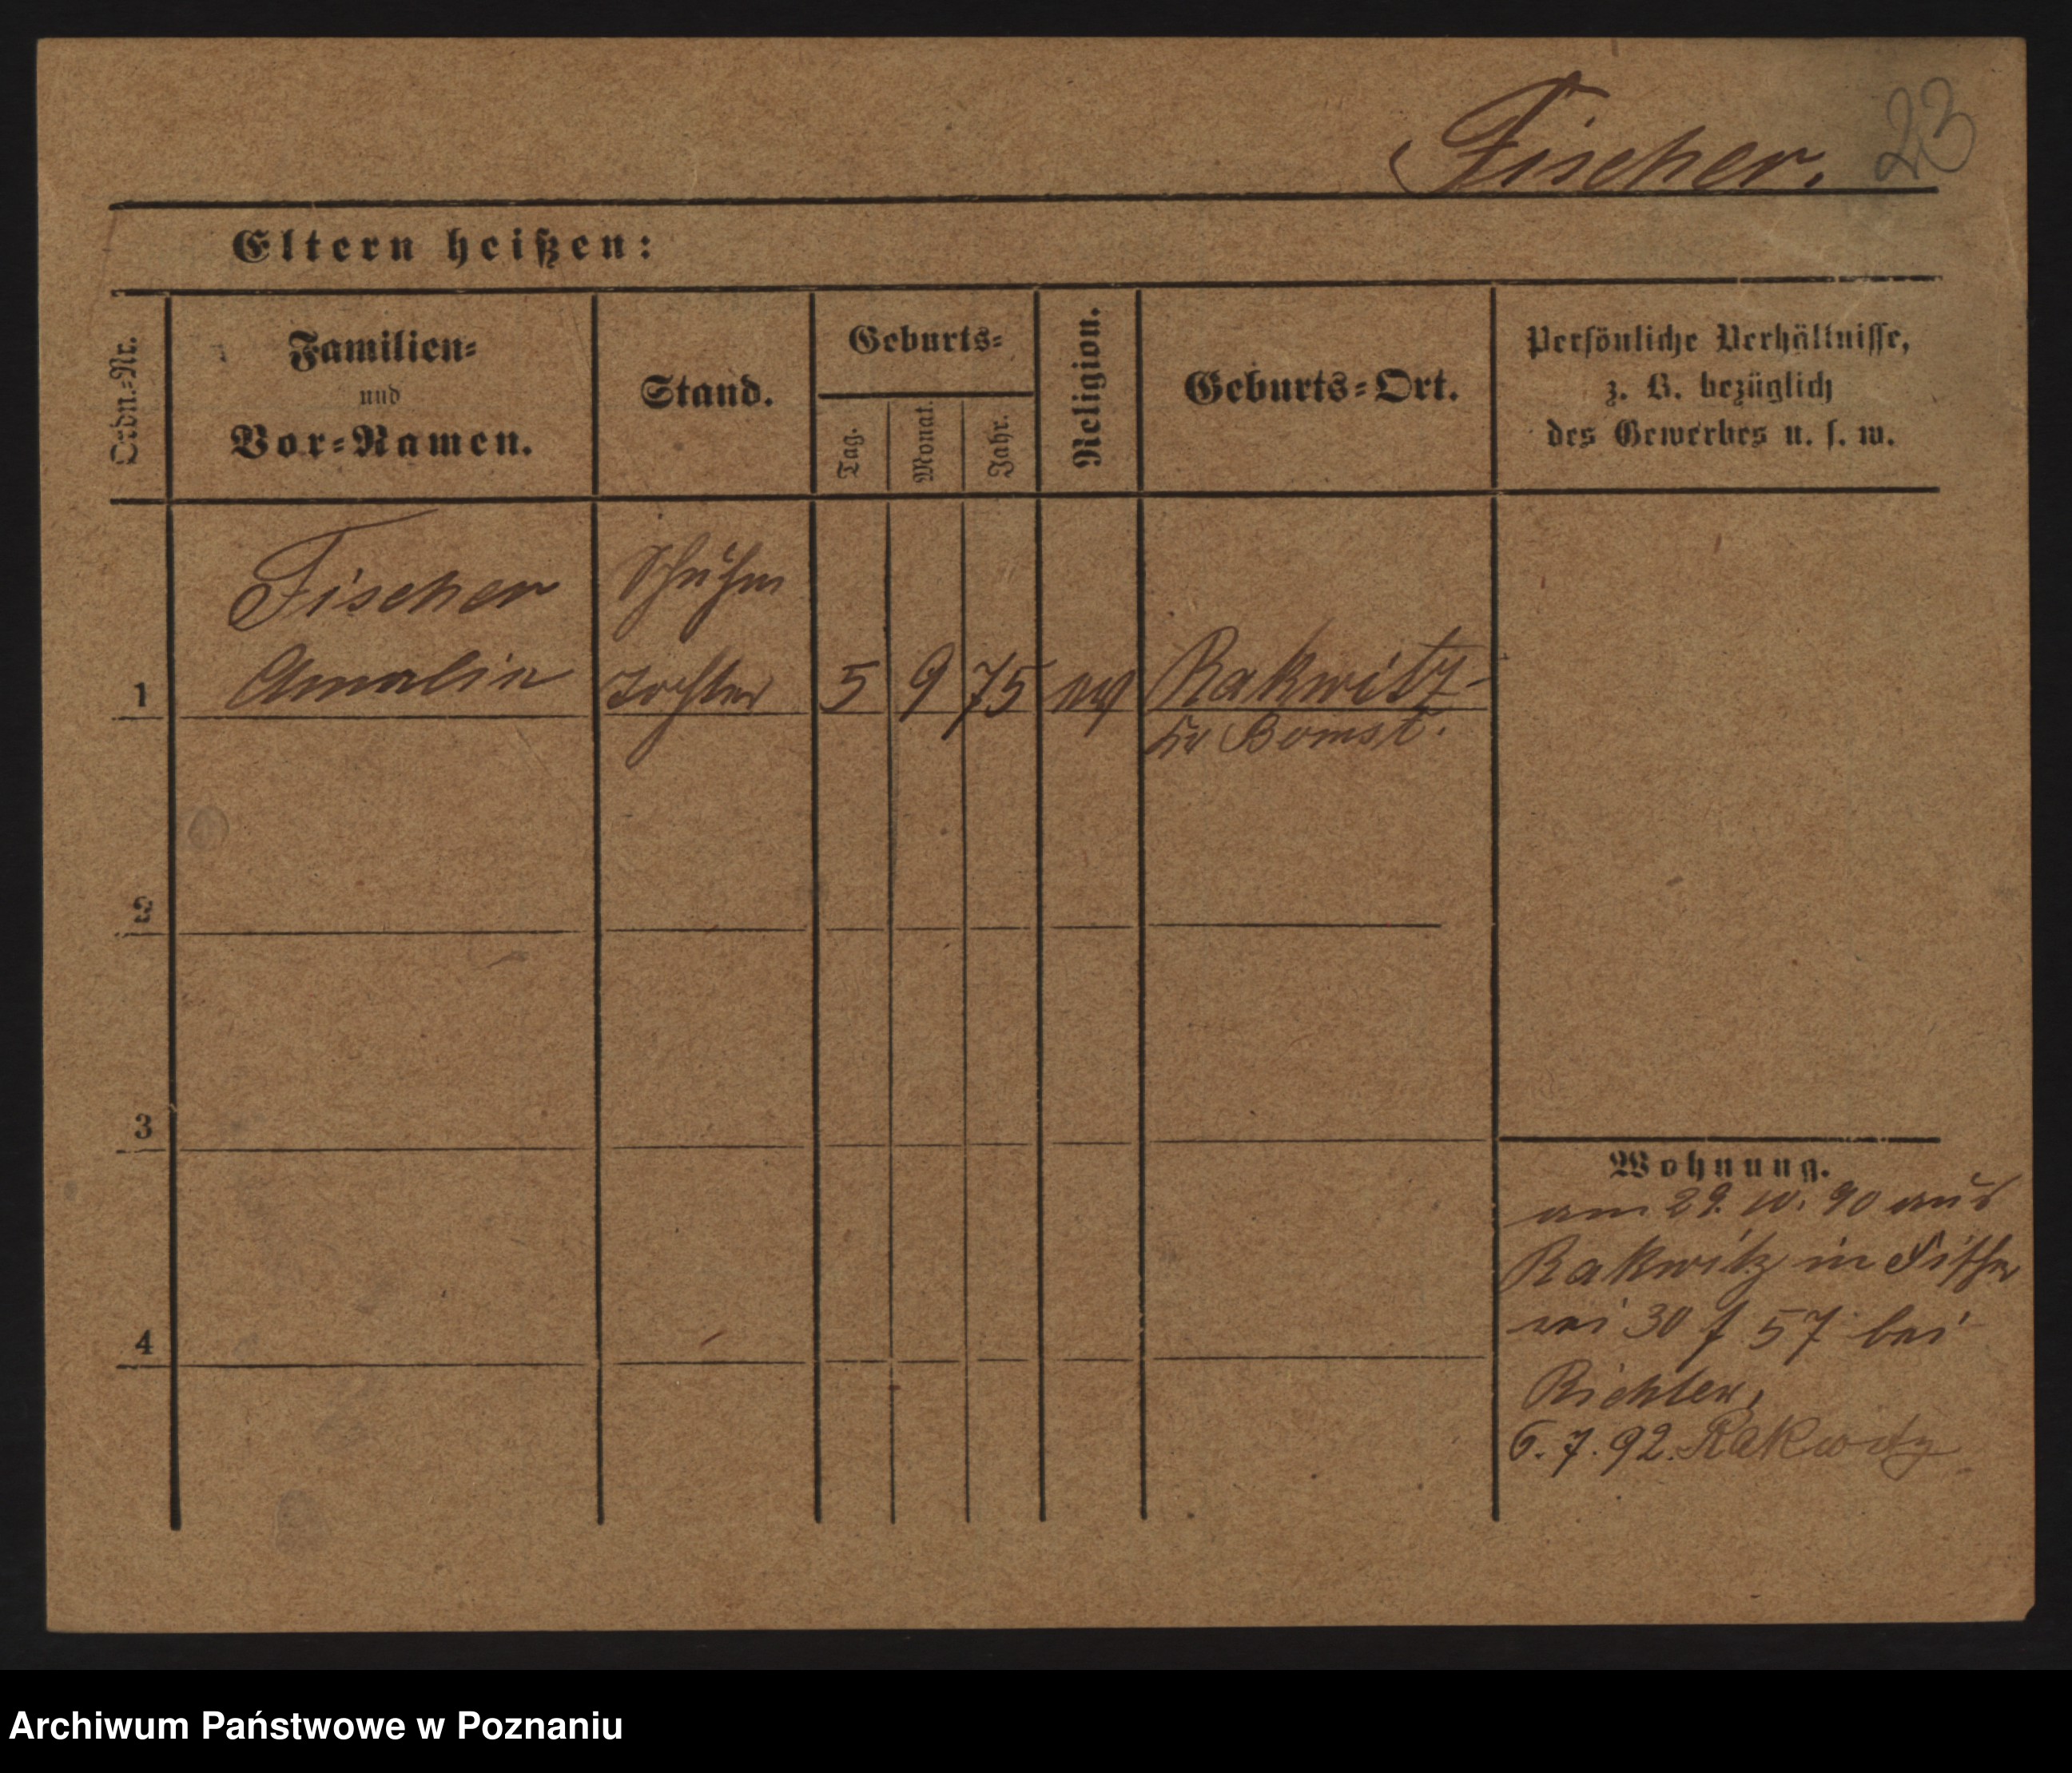 Fischer. 23
Eltern heißen:
Ordn.=Nr.
Familien=
und
Vor=Namen.
Stand.
Geburts=
Tag.
Monat.
Jahr.
Religion.
Geburts=Ort.
Persönliche Verhältnisse,
z. B. bezüglich
des Gewerbes u. s. w.
Fischer
Amalie
Schuhm
tochter
1
5 9 75 ev
Rakwitz
Kr Bomst.
2
3
4
Wohnung.
am 29. 10. 90 aus
Rakwitz in Fische
rei 30 f 57 bei
Richter,
6. 7. 92. Rakwitz
Archiwum Państwowe w Poznaniu